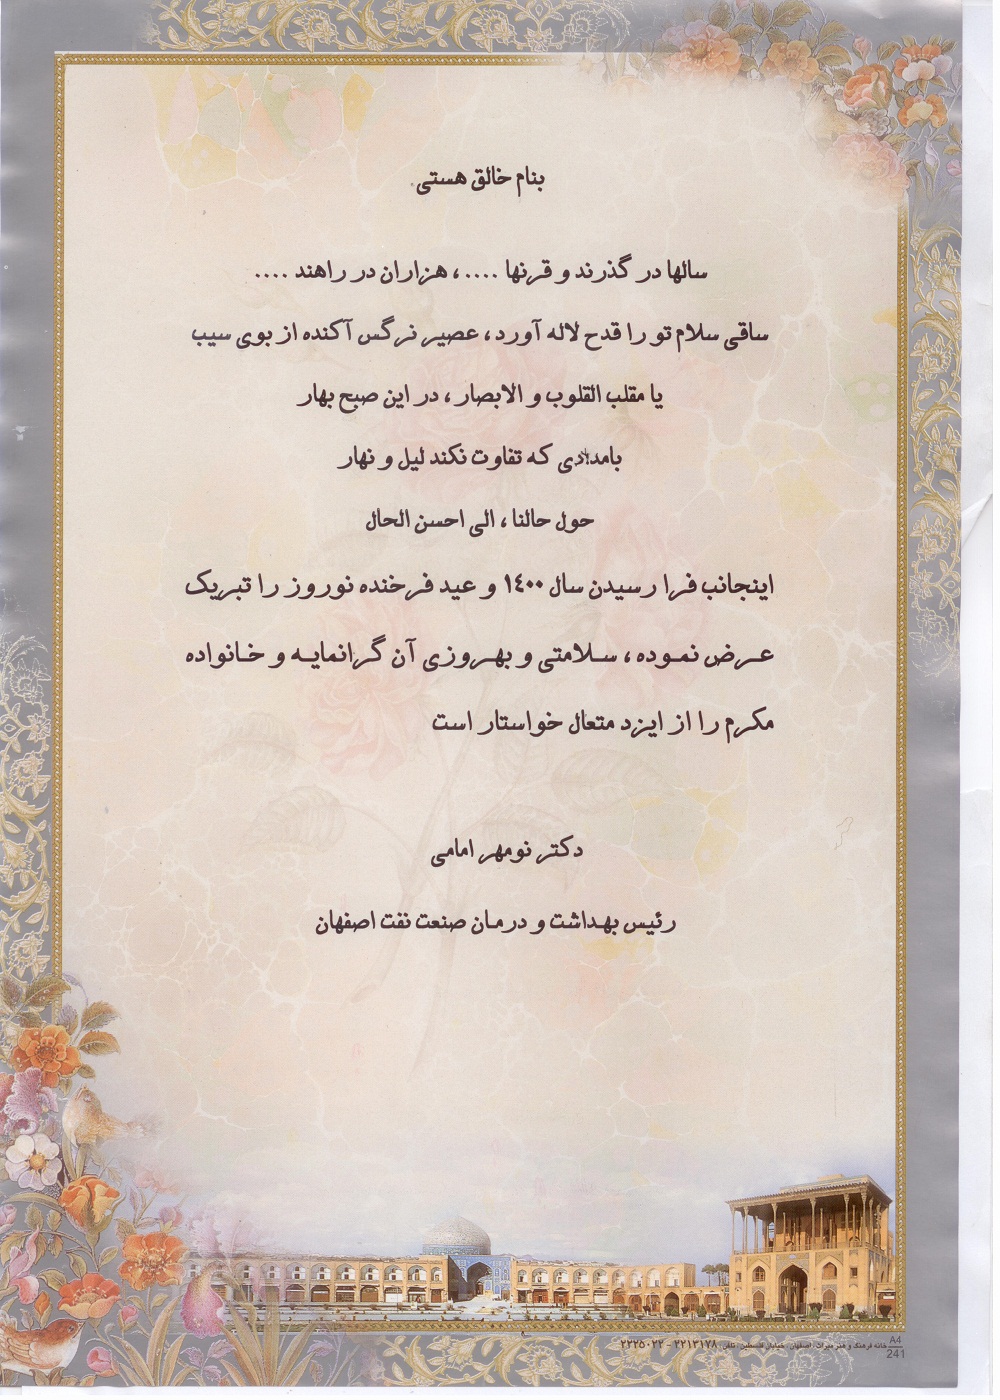 بنام خالق هستی
سالها در گذرند و قرنها ....، هزاران در راهند ....
ساقی سلام تو را قدح لاله آورد، عصیر نرگس آکنده از بوی سیب
یا مقلب القلوب و الابصار، در این صبح بهار
بامدادی که تفاوت نکند لیل و نهار
حول حالنا، الی احسن الحال
اینجانب فرا رسیدن سال ۱۴۰۰ و عید فرخنده نوروز را تبریک
عرض نموده، سلامتی و بهروزی آن گرانمایه و خانواده
مکرم را از ایزد متعال خواستار است
دکتر نومهر امامی
رئیس بهداشت و درمان صنعت نفت اصفهان
خانه فرهنگ و هنر میراث، اصفهان، خیابان فلسطین، تلفن: ۲۲۱۳۱۷۸ - ۲۲۲۵۰۲۲
A4
241